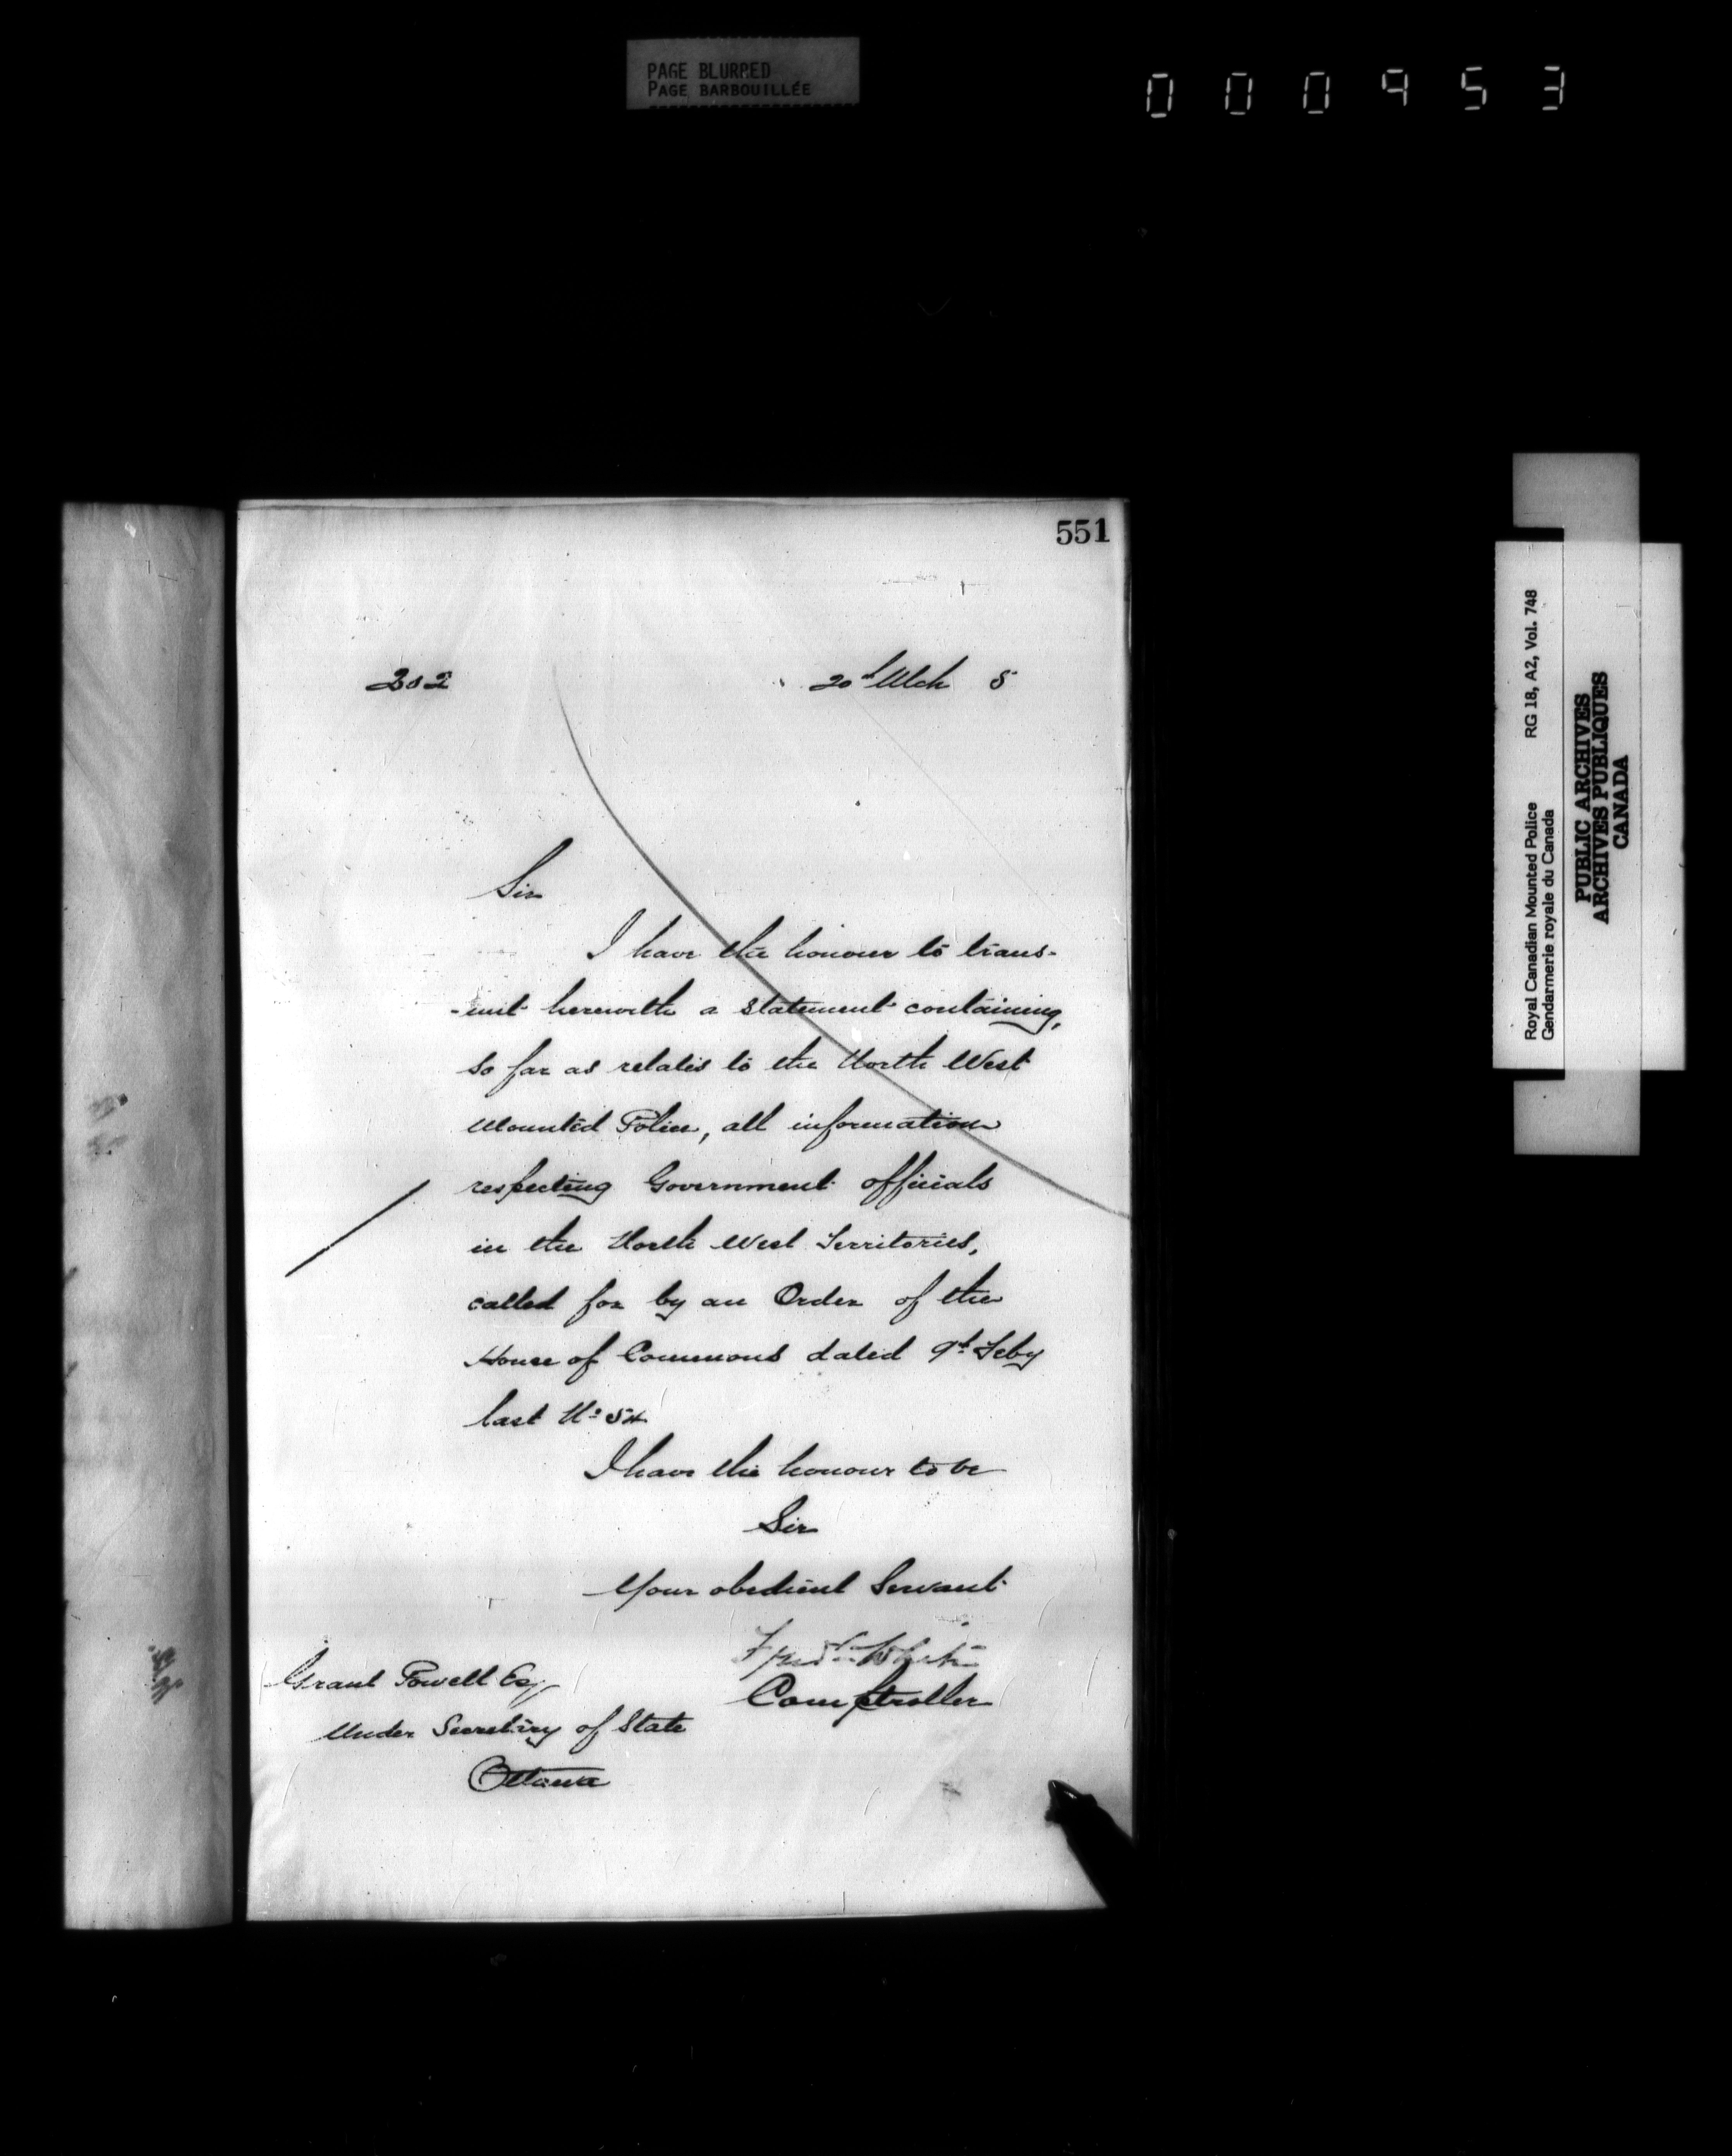 PAGE BLURRED
PAGE BARBOUILLÉE
000953
551
302
20th Mch 5
Sir
I have the honour to trans-
-mit herewith a statement containing,
so far as relates to the North West
Mounted Police, all information
respecting Government officials
in the North West Territories,
called for by an Order of the
House of Commons dated 9th Feby
last No 54
I have the honour to be
Sir
Your obedient Servant
Fred White
Comptroller
Grant Powell Esq
Under Secretary of State
Ottawa
Royal Canadian Mounted Police RG 18, A2, Vol. 748
Gendarmerie royale du Canada
PUBLIC ARCHIVES
ARCHIVES PUBLIQUES
CANADA